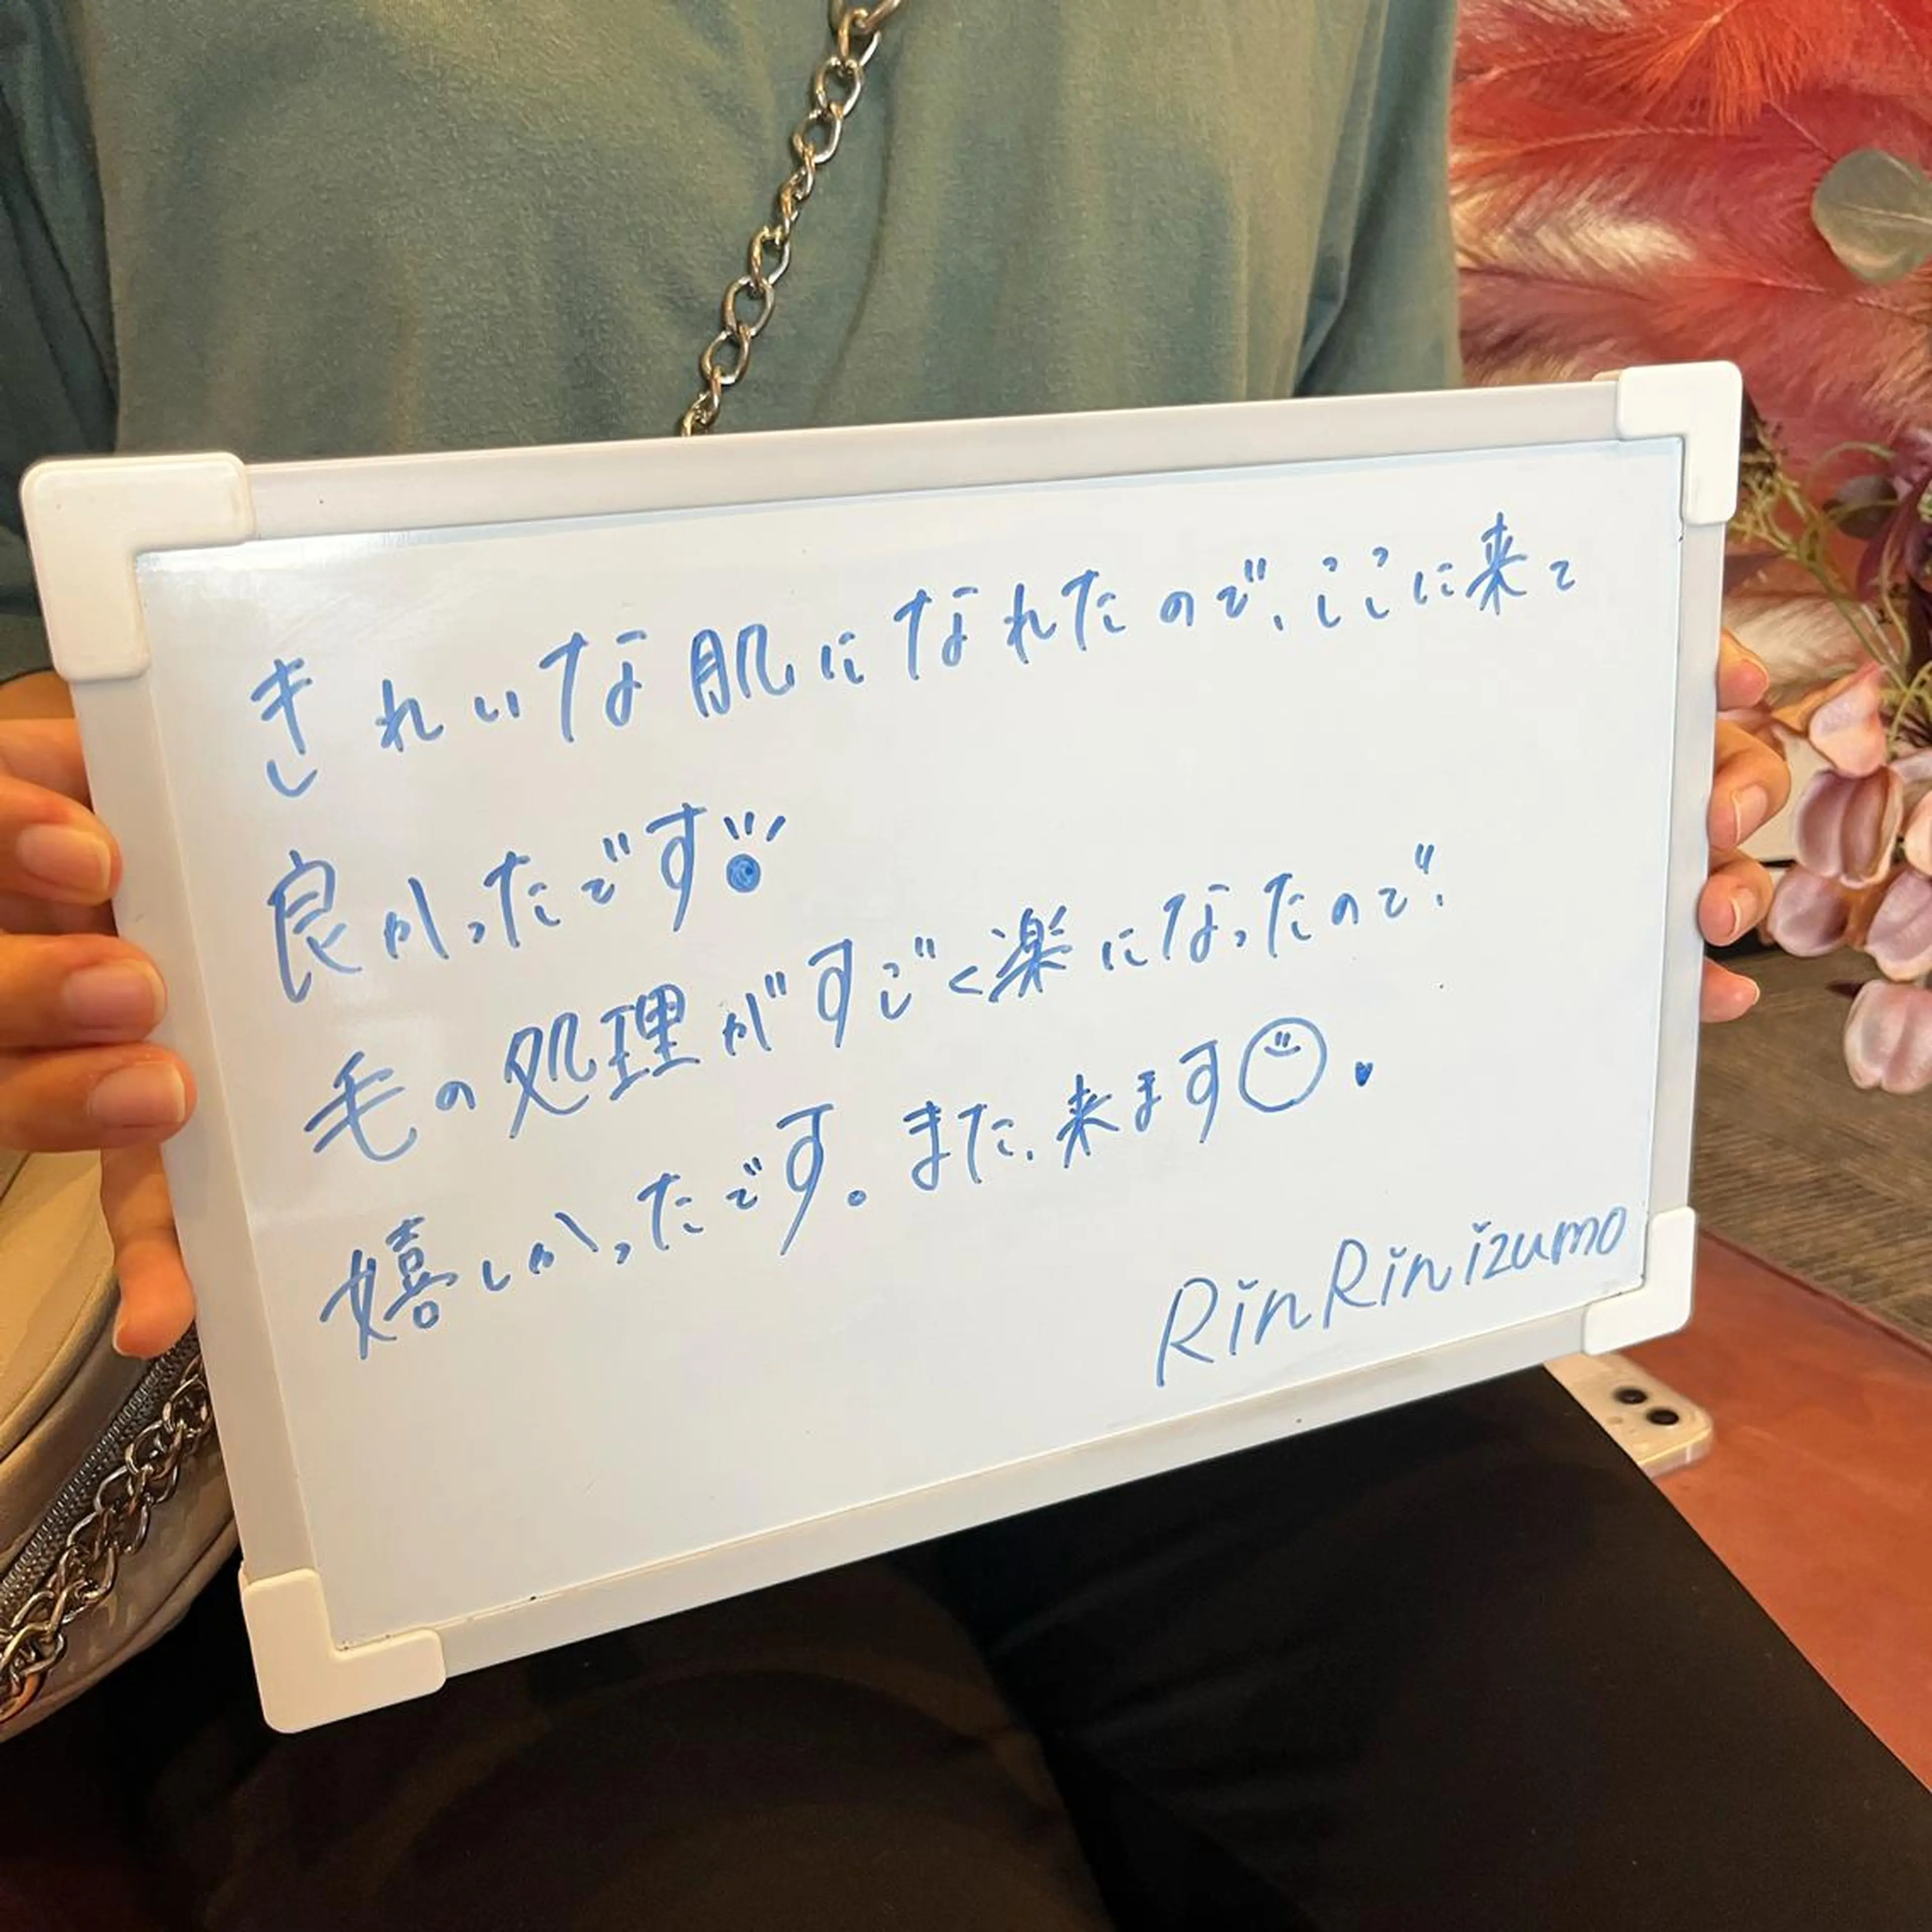 きれいな肌になれたので、ここに来て
良かったです
毛の処理がすごく楽になったので、
嬉しかったです。また、来ます
RinRinizumo